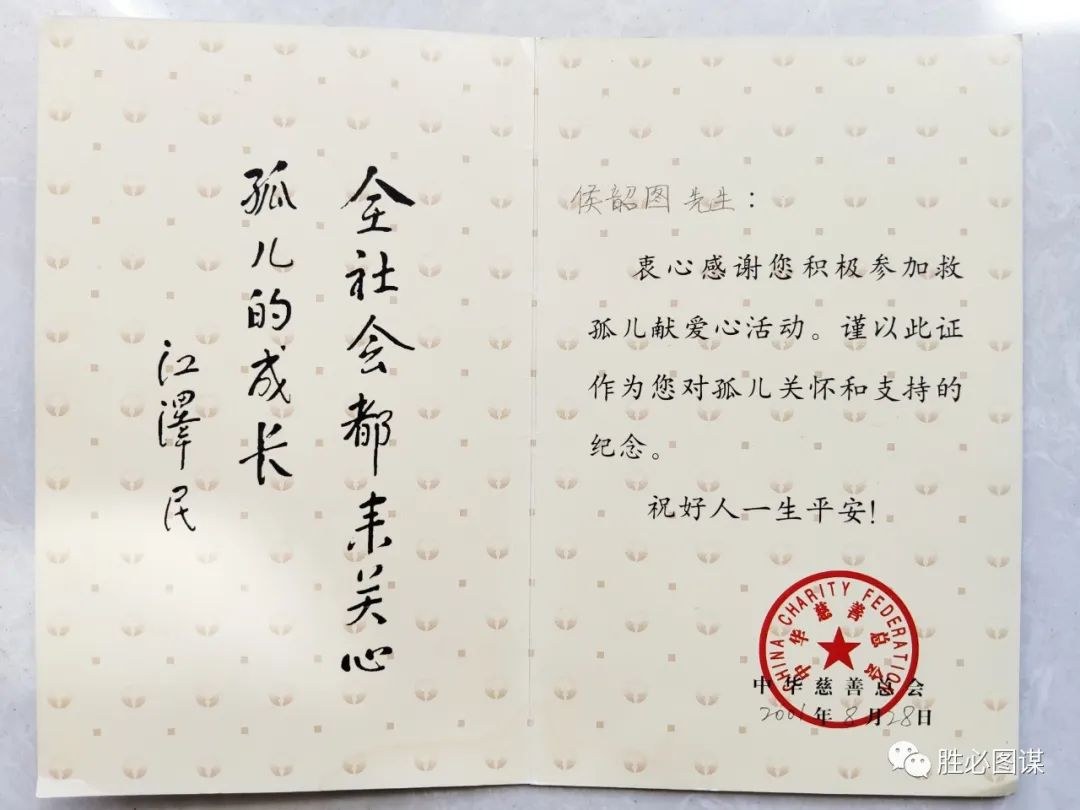 全社会都来关心
孤儿的成长
江泽民
侯韶图 先生：
衷心感谢您积极参加救
孤儿献爱心活动。谨以此证
作为您对孤儿关怀和支持的
纪念。
祝好人一生平安！
CHINA CHARITY FEDERATION
中华慈善总会
中华慈善总会
2001年8月28日
胜必图谋